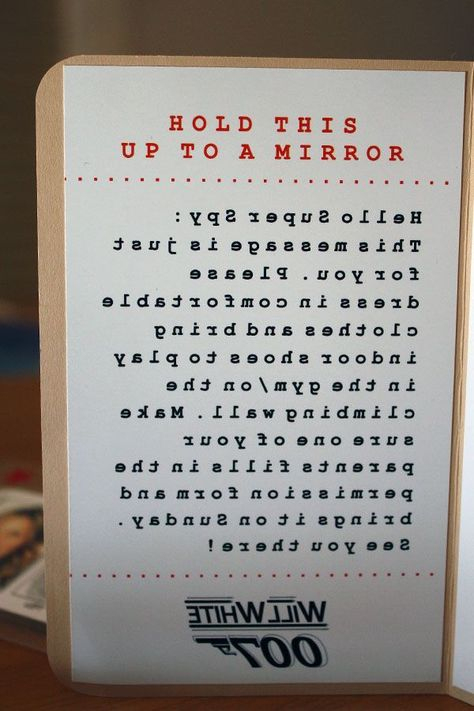 HOLD THIS
UP TO A MIRROR
Hello Super Spy:
This message is just
for you. Please
dress in comfortable
clothes and bring
indoor shoes to play
in the gym/on the
climbing wall. Make
sure one of your
parents fills in the
permission form and
brings it on Sunday.
See you there!
WILL WHITE
007